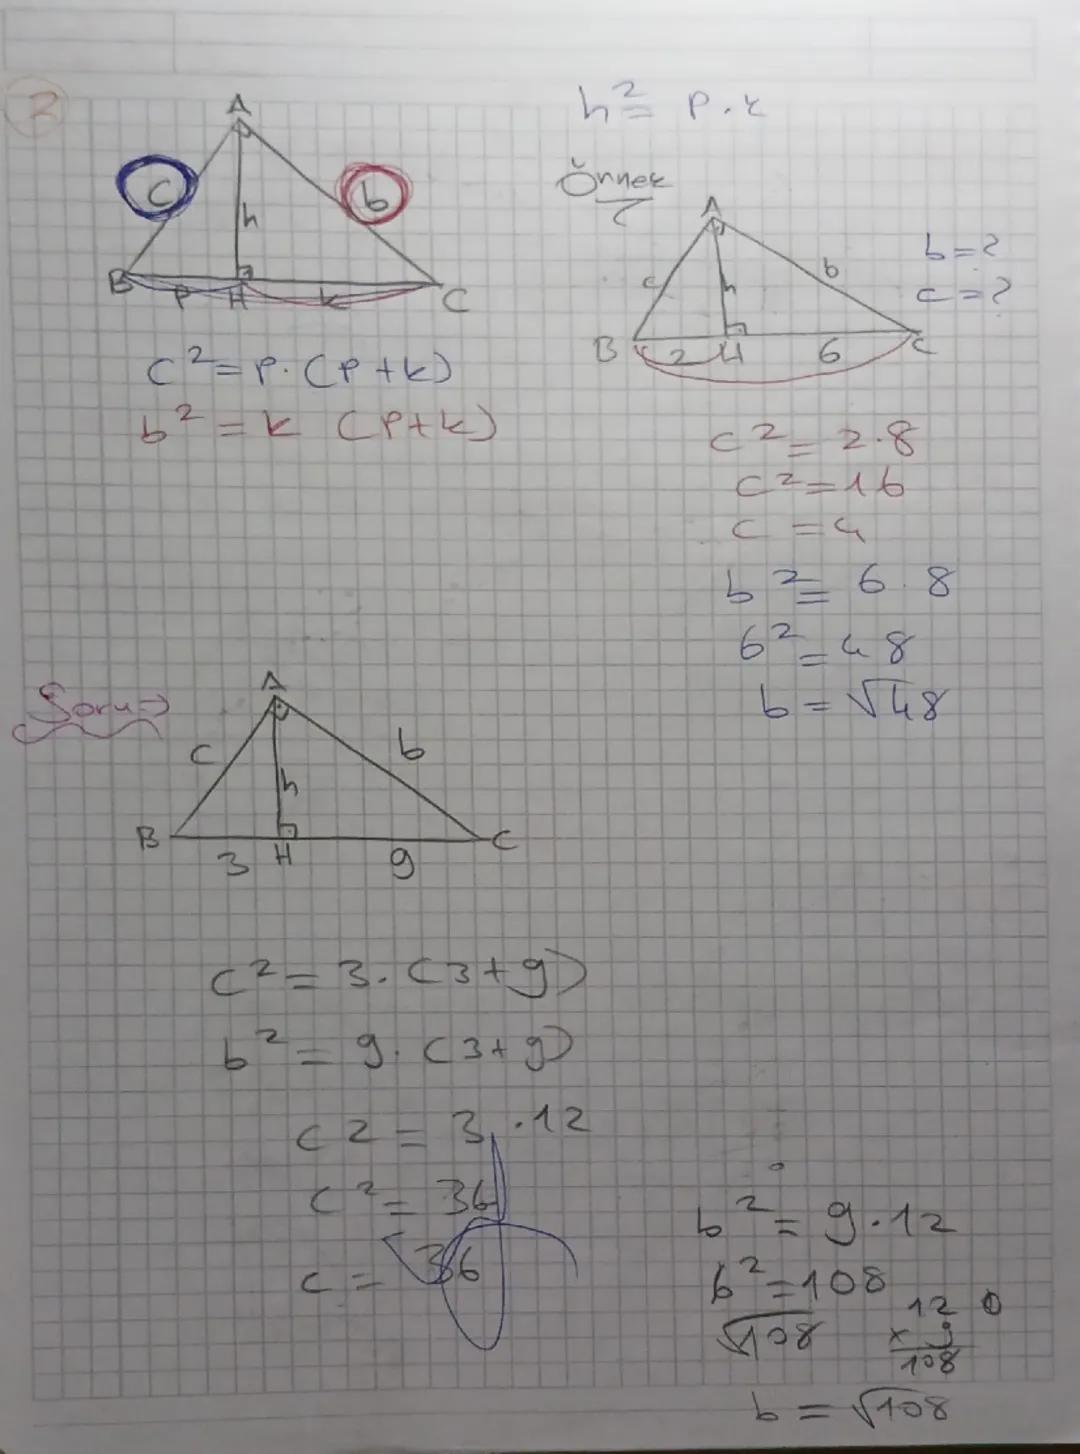 2
A
c
b
h
B
P
H
k
C
c² = P.(P+k)
b² = k (P+k)
h² = P.k
Örnek
A
c
h
b
B
2
H
6
C
b=?
c=?
c² = 2.8
c² = 16
c = 4
b² = 6.8
b² = 48
b = √48
Soru⇒
A
c
h
b
B
3
H
9
C
c² = 3.(3+9)
b² = 9.(3+9)
c2 = 3.12
c² = 36
c = √36
b² = 9.12
b² = 108
√108
12
x 9
108
b = √108